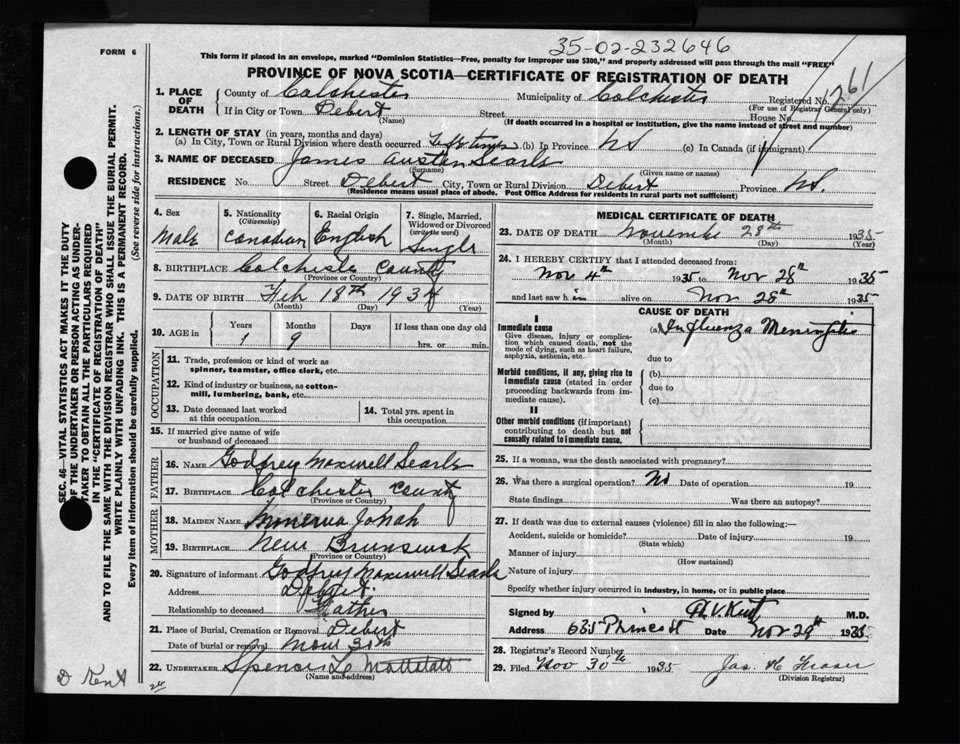 FORM 6
35-02-232646
This form if placed in an envelope, marked "Dominion Statistics—Free, penalty for improper use $300," and properly addressed will pass through the mail "FREE"
PROVINCE OF NOVA SCOTIA—CERTIFICATE OF REGISTRATION OF DEATH
1261
SEC. 46—VITAL STATISTICS ACT MAKES IT THE DUTY
OF THE UNDERTAKER OR PERSON ACTING AS UNDER-
TAKER TO OBTAIN ALL THE PARTICULARS REQUIRED
IN THE "CERTIFICATE OF REGISTRATION OF DEATH"
AND TO FILE THE SAME WITH THE DIVISION REGISTRAR WHO SHALL ISSUE THE BURIAL PERMIT.
WRITE PLAINLY WITH UNFADING INK. THIS IS A PERMANENT RECORD.
Every item of information should be carefully supplied. (See reverse side for instructions.)
1. PLACE OF DEATH
County of Colchester Municipality of Colchester Registered No.
(For use of Registrar General only)
If in City or Town Debert Street House No.
(Name) (If death occurred in a hospital or institution, give the name instead of street and number)
2. LENGTH OF STAY (in years, months and days)
(a) In City, Town or Rural Division where death occurred Life time (b) In Province NS (c) In Canada (if immigrant)
3. NAME OF DECEASED James Austin Searls
(Surname) (Given name or names)
RESIDENCE No. Street Debert City, Town or Rural Division Debert Province NS.
(Residence means usual place of abode. Post Office Address for residents in rural parts not sufficient)
4. Sex
Male
5. Nationality
(Citizenship)
Canadian
6. Racial Origin
English
7. Single, Married, Widowed or Divorced
(write the word)
Single
8. BIRTHPLACE Colchester County
(Province or Country)
9. DATE OF BIRTH Feb 18th 1934
(Month) (Day) (Year)
10. AGE in
Years Months Days If less than one day old
1 9 hrs. or min.
OCCUPATION
11. Trade, profession or kind of work as
spinner, teamster, office clerk, etc.
12. Kind of industry or business, as cotton-
mill, lumbering, bank, etc.
13. Date deceased last worked
at this occupation
14. Total yrs. spent in
this occupation
15. If married give name of wife
or husband of deceased
FATHER
16. NAME Godfrey Maxwell Searls
17. BIRTHPLACE Colchester County
(Province or Country)
MOTHER
18. MAIDEN NAME Minerva Jonah
19. BIRTHPLACE New Brunswick
(Province or Country)
20. Signature of informant Godfrey Maxwell Searls
Address Debert
Relationship to deceased Father
21. Place of Burial, Cremation or Removal Debert
Date of burial or removal
22. UNDERTAKER Spencer L. Mattatall
(Name and address)
D Kent
MEDICAL CERTIFICATE OF DEATH
23. DATE OF DEATH November 28th 1935
(Month) (Day) (Year)
24. I HEREBY CERTIFY that I attended deceased from:
Nov 4th 1935 to Nov 28th 1935
and last saw him alive on Nov 28th 1935
CAUSE OF DEATH
I
Immediate cause
Give disease, injury or complica-
tion which caused death, not the
mode of dying, such as heart failure,
asphyxia, asthenia, etc.
(a) Influenza Meningitis
due to
Morbid conditions, if any, giving rise to
immediate cause (stated in order
proceeding backwards from im-
mediate cause).
(b)
due to
(c)
II
Other morbid conditions (if important)
contributing to death but not
causally related to immediate cause.
25. If a woman, was the death associated with pregnancy?
26. Was there a surgical operation? No Date of operation 19
State findings Was there an autopsy?
27. If death was due to external causes (violence) fill in also the following:—
Accident, suicide or homicide? Date of injury 19
(State which)
Manner of injury
(How sustained)
Nature of injury
Specify whether injury occurred in industry, in home, or in public place
Signed by H.V. Kent M.D.
Address 635 Prince St Date Nov 29th 1935
28. Registrar's Record Number
29. Filed Nov 30th 1935 Jas. H. Fraser
(Division Registrar)